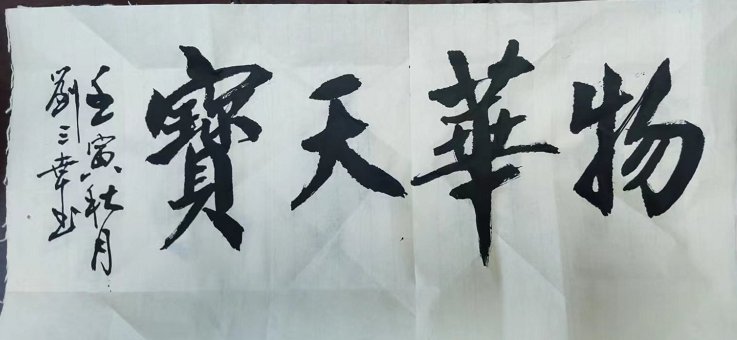 物華天寶
壬寅秋月
劉三幸书